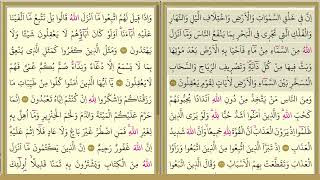 اِنَّ فِي خَلْقِ السَّمٰوَاتِ وَالْاَرْضِ وَاخْتِلَافِ الَّيْلِ وَالنَّهَارِ
وَالْفُلْكِ الَّتِي تَجْرِي فِي الْبَحْرِ بِمَا يَنْفَعُ النَّاسَ وَمَا اَنْزَلَ
اللهُ مِنَ السَّمَاءِ مِنْ مَاءٍ فَاَحْيَا بِهِ الْاَرْضَ بَعْدَ مَوْتِهَا
وَبَثَّ فِيهَا مِنْ كُلِّ دَابَّةٍ وَتَصْرِيفِ الرِّيَاحِ وَالسَّحَابِ
الْمُسَخَّرِ بَيْنَ السَّمَاءِ وَالْاَرْضِ لَاٰيَاتٍ لِقَوْمٍ يَعْقِلُونَ
وَمِنَ النَّاسِ مَنْ يَتَّخِذُ مِنْ دُونِ اللهِ اَنْدَادًا يُحِبُّونَهُمْ
كَحُبِّ اللهِ وَالَّذِينَ اٰمَنُوا اَشَدُّ حُبًّا لِلّٰهِ وَلَوْ يَرَى الَّذِينَ
ظَلَمُوا اِذْ يَرَوْنَ الْعَذَابَ اَنَّ الْقُوَّةَ لِلّٰهِ جَمِيعًا وَاَنَّ اللهَ شَدِيدُ
الْعَذَابِ اِذْ تَبَرَّاَ الَّذِينَ اتُّبِعُوا مِنَ الَّذِينَ اتَّبَعُوا وَرَاَوُا
الْعَذَابَ وَتَقَطَّعَتْ بِهِمُ الْاَسْبَابُ وَقَالَ الَّذِينَ اتَّبَعُوا
وَاِذَا قِيلَ لَهُمُ اتَّبِعُوا مَا اَنْزَلَ اللهُ قَالُوا بَلْ نَتَّبِعُ مَا اَلْفَيْنَا
عَلَيْهِ اٰبَاءَنَا اَوَلَوْ كَانَ اٰبَاؤُهُمْ لَا يَعْقِلُونَ شَيْئًا وَلَا
يَهْتَدُونَ وَمَثَلُ الَّذِينَ كَفَرُوا كَمَثَلِ الَّذِي يَنْعِقُ
بِمَا لَا يَسْمَعُ اِلَّا دُعَاءً وَنِدَاءً صُمٌّ بُكْمٌ عُمْيٌ فَهُمْ
لَا يَعْقِلُونَ يَا اَيُّهَا الَّذِينَ اٰمَنُوا كُلُوا مِنْ طَيِّبَاتِ مَا
رَزَقْنَاكُمْ وَاشْكُرُوا لِلّٰهِ اِنْ كُنْتُمْ اِيَّاهُ تَعْبُدُونَ اِنَّمَا
حَرَّمَ عَلَيْكُمُ الْمَيْتَةَ وَالدَّمَ وَلَحْمَ الْخِنْزِيرِ وَمَا اُهِلَّ بِهِ
لِغَيْرِ اللهِ فَمَنِ اضْطُرَّ غَيْرَ بَاغٍ وَلَا عَادٍ فَلَا اِثْمَ عَلَيْهِ
اِنَّ اللهَ غَفُورٌ رَحِيمٌ اِنَّ الَّذِينَ يَكْتُمُونَ مَا اَنْزَلَ
اللهُ مِنَ الْكِتَابِ وَيَشْتَرُونَ بِهِ ثَمَنًا قَلِيلًا اُولٰئِكَ